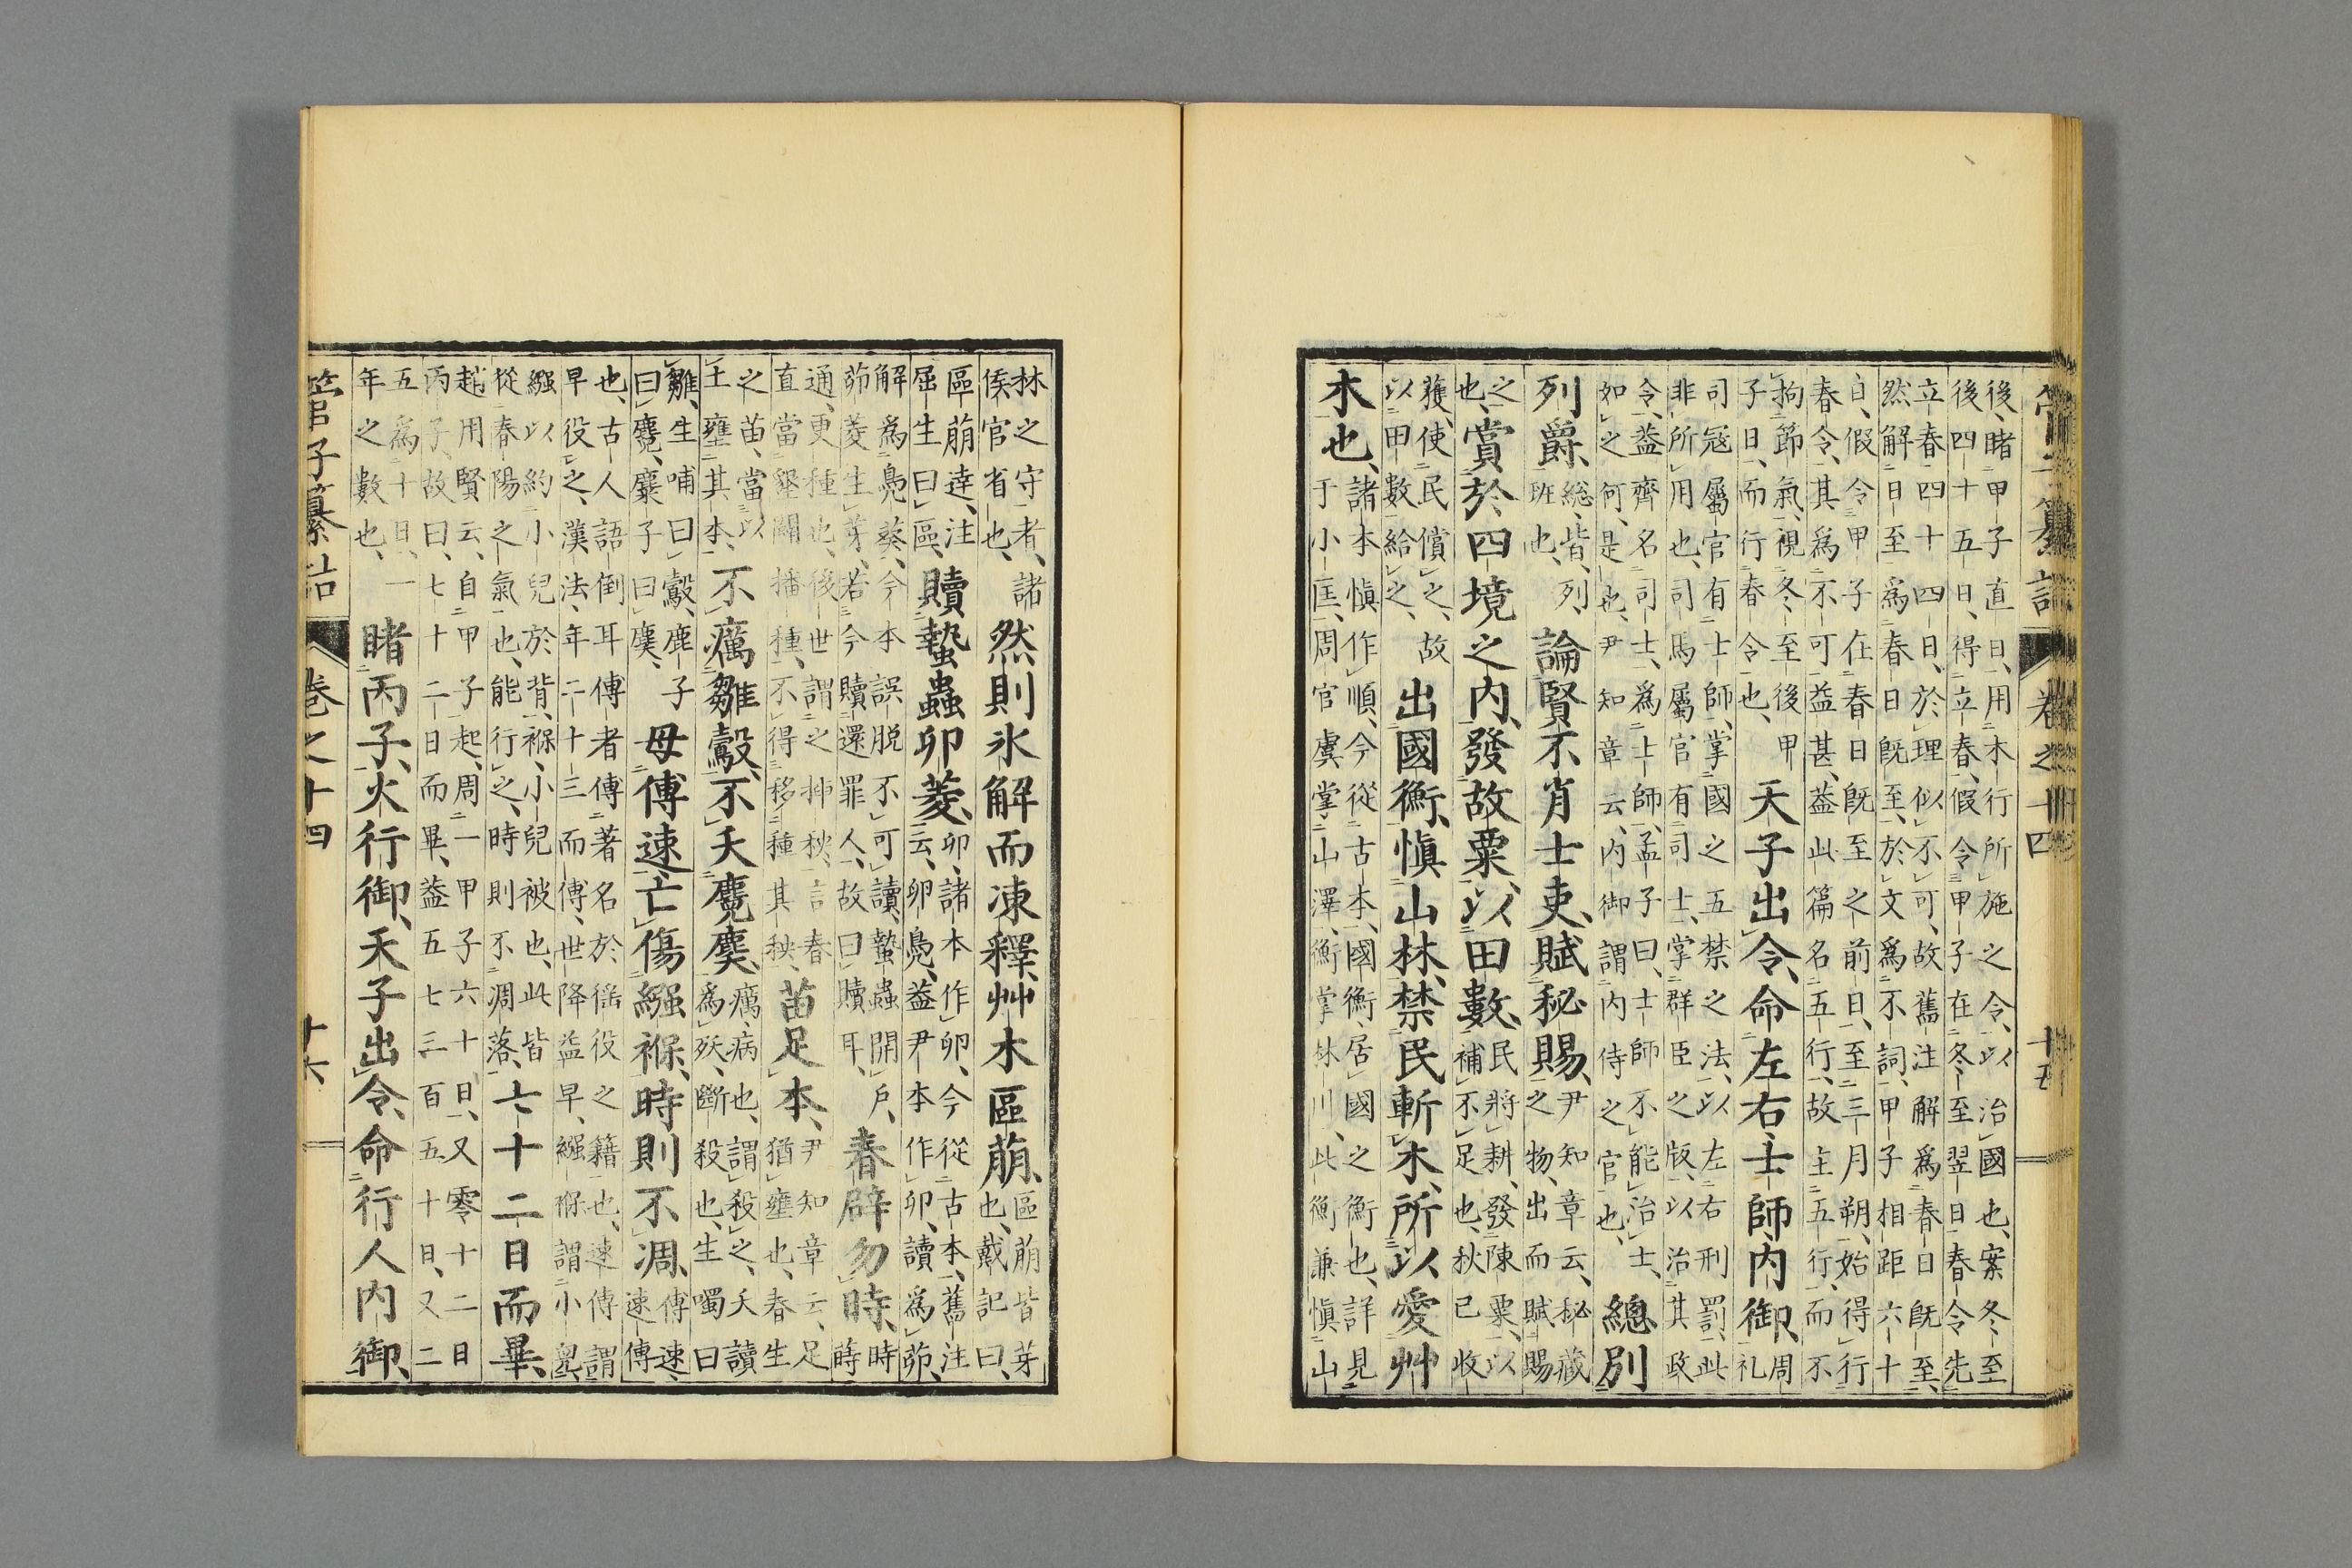 管子纂詁 卷之十四 十五
後、睹甲子直日、用木行所施之令、以治國也、案冬至
後四十五日、得立春、假令甲子在冬至翌日、春令先
立春四十四日、於理似不可、故舊注解爲春日既至、
然解日至爲春日既至、於文爲不詞、甲子相距六十
日、假令甲子在春日既至之前日、至三月朔、始得行
春令、其爲不可益甚、葢此篇名五行、故主五行、而不
拘節氣、視冬至後甲
子日、而行春令也、
天子出令、命左右士師内御、
周
礼
司冦屬官有士師、掌國之五禁之法、以左右刑罰、此
非所用也、司馬屬官有司士、掌群臣之版、以治其政
令、葢齊名司士、爲士師、孟子曰、士師不能治士、
如之何、是也、尹知章云、内御謂内侍之官也、
總別
列爵、
總、皆、列、
班也、
論賢不肖士吏、賦秘賜、
尹知章云、秘藏
之物、出而賦賜
之
也、
賞於四境之内、發故粟、以田數、
民將耕、發陳粟、以
補不足也、秋已收
獲、使民償之、故
以田數給之、
出國衡、愼山林、禁民斬木、所以愛艸
木也、
諸本愼作順、今從古本、國衡、居國之衡也、詳見
于小匡、周官虞掌山澤、衡掌林川、此衡兼愼山
林之守者、諸
侯官省也、
然則氷解而凍釋、艸木區萠、
區萠皆芽
也、戴記曰、
區萠逹、注
屈生曰區、
贖蟄蟲卯菱、
卯、諸本作卵、今從古本、舊注
云、卵鳧、葢尹本作卯、讀爲茆、
解爲鳧葵、今本誤脱不可讀、蟄蟲開戶、
茆菱生芽、若今贖還罪人、故曰贖耳、
春辟勿時、
時
蒔
通、更種也、後世謂之挿秧、言春
直當墾闢播種、不得移種其秧、
苗足本、
尹知章云、足
猶壅也、春生
之苗、當以
土壅其本、
不癘雛鷇、不夭麑麌、
癘、病也、謂殺之、夭讀
爲殀、斷殺也、生噣曰
雛、生哺曰鷇、鹿子
曰麑、麋子曰麌、
毋傅速、亡傷繈褓、時則不凋、
傅速、
速傅
也、古人語倒耳、傅者傅著名於徭役之籍也、速傅謂
早役之、漢法、年二十三而傅、世降益早、繈褓謂小兒、
繈以約小兒於背、褓、小兒被也、此皆
從春陽之氣也、能行之、時則不凋落、
七十二日而畢、
趙用賢云、自甲子起、周一甲子六十日、又零十二日
丙子、故曰、七十二日而畢、葢五七三百五十日、又二
五爲十日、一
年之數也、
睹丙子、火行御、天子出令、命行人内御、
管子纂詁 卷之十四 十六